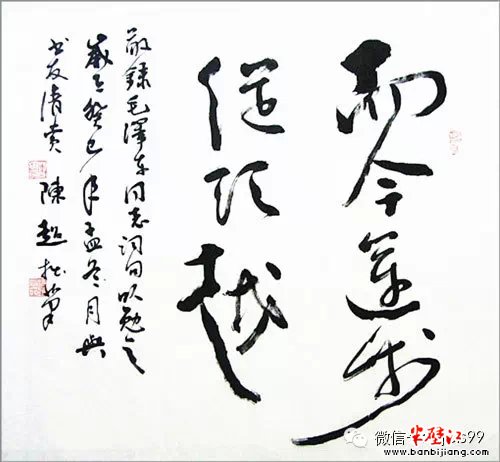 而今邁步
從頭越
敬録毛澤东同志词句以勉之
歲在癸巳年孟冬月與
书友清賞 陳超拙筆
微信
s99
半壁江
www.banbijiang.com